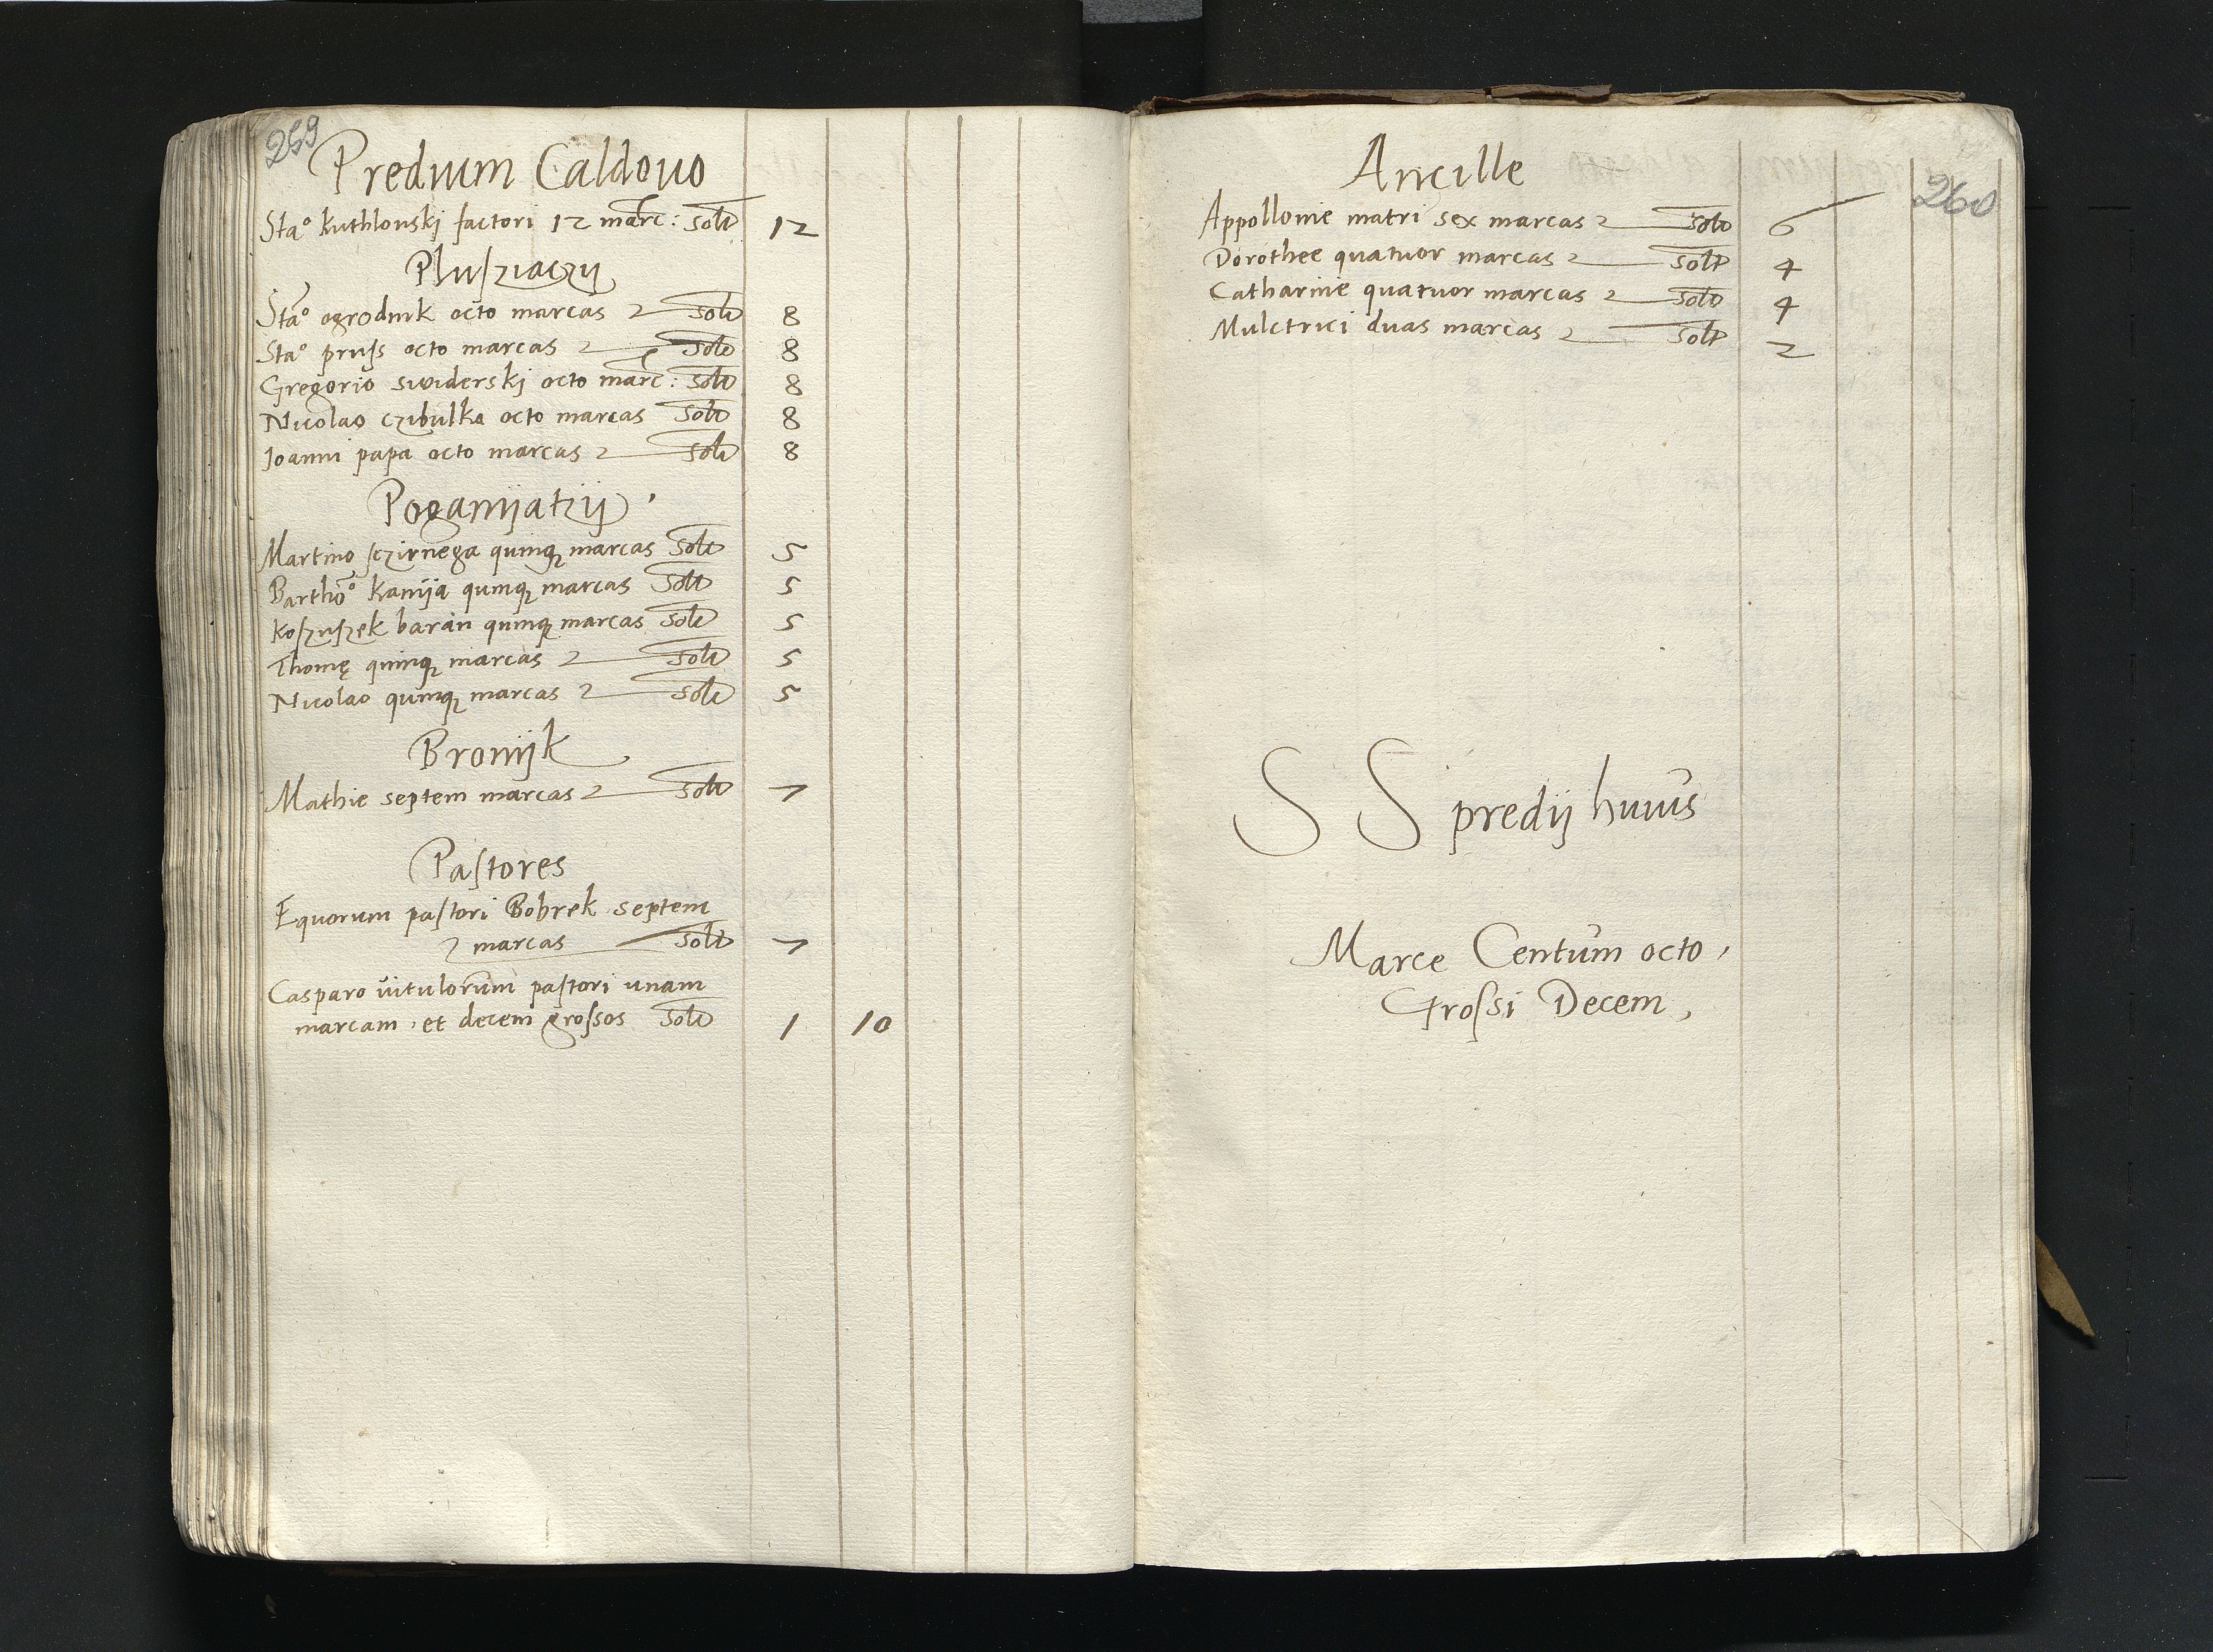 259
Predium Caldovo
Sta° Kuthlouskj factori 12 marc: solt 12
Plusziaczy
Sta° ogrodnik octo marcas solt 8
Sta° pruss octo marcas solt 8
Gregorio swiderskj octo marc: solt 8
Nicolao czibulka octo marcas solt 8
Joanni papa octo marcas solt 8
Poganijatzij
Martino sczirnega quinq marcas solt 5
Bartho° kanija quinq marcas solt 5
koszuszek baran quinq marcas solt 5
Thomę quinq marcas solt 5
Nicolao quinq marcas solt 5
Bronijk
Mathie septem marcas solt 7
Pastores
Equorum pastori Bobrek septem
marcas solt 7
Casparo vitulorum pastori unam
marcam, et decem grossos solt 1 10
260
Ancille
Appollonie matri sex marcas solt 6
Dorothee quatuor marcas solt 4
Catharine quatuor marcas solt 4
Mulctrici duas marcas solt 2
S S predij huius
Marce Centum octo,
Grossi Decem,